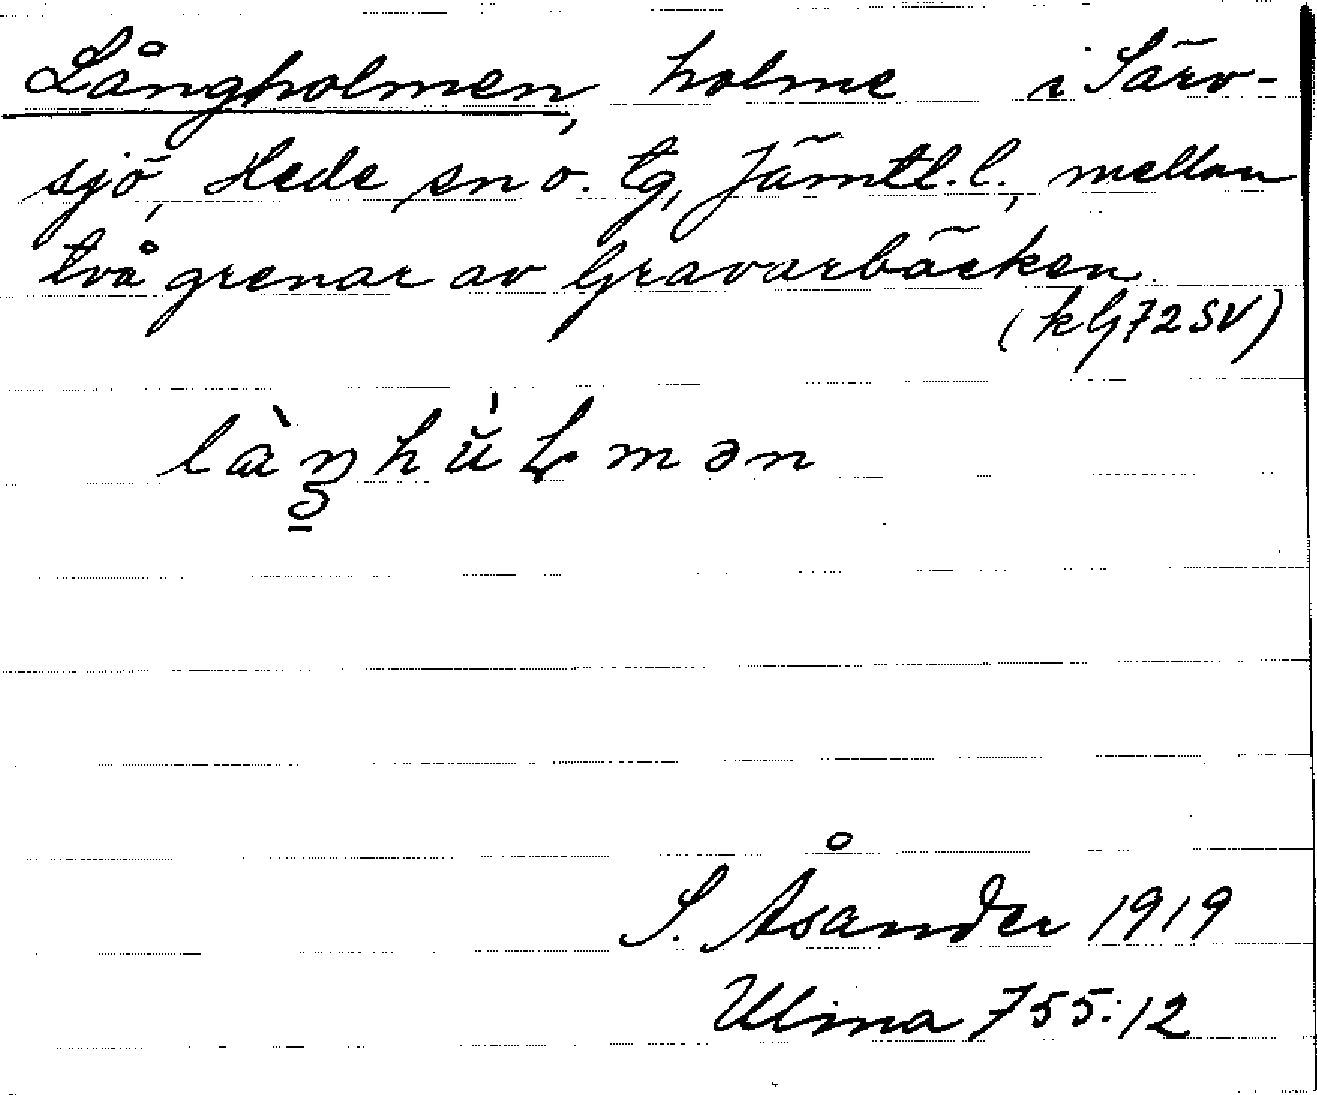 Långholmen, holme i Särv-
sjö, Hede sn o. tg, Jämtl. l., mellan
två grenar av Gravarbäcken.
(kG72SV)
S. Åsander 1919
Ulma 755:12